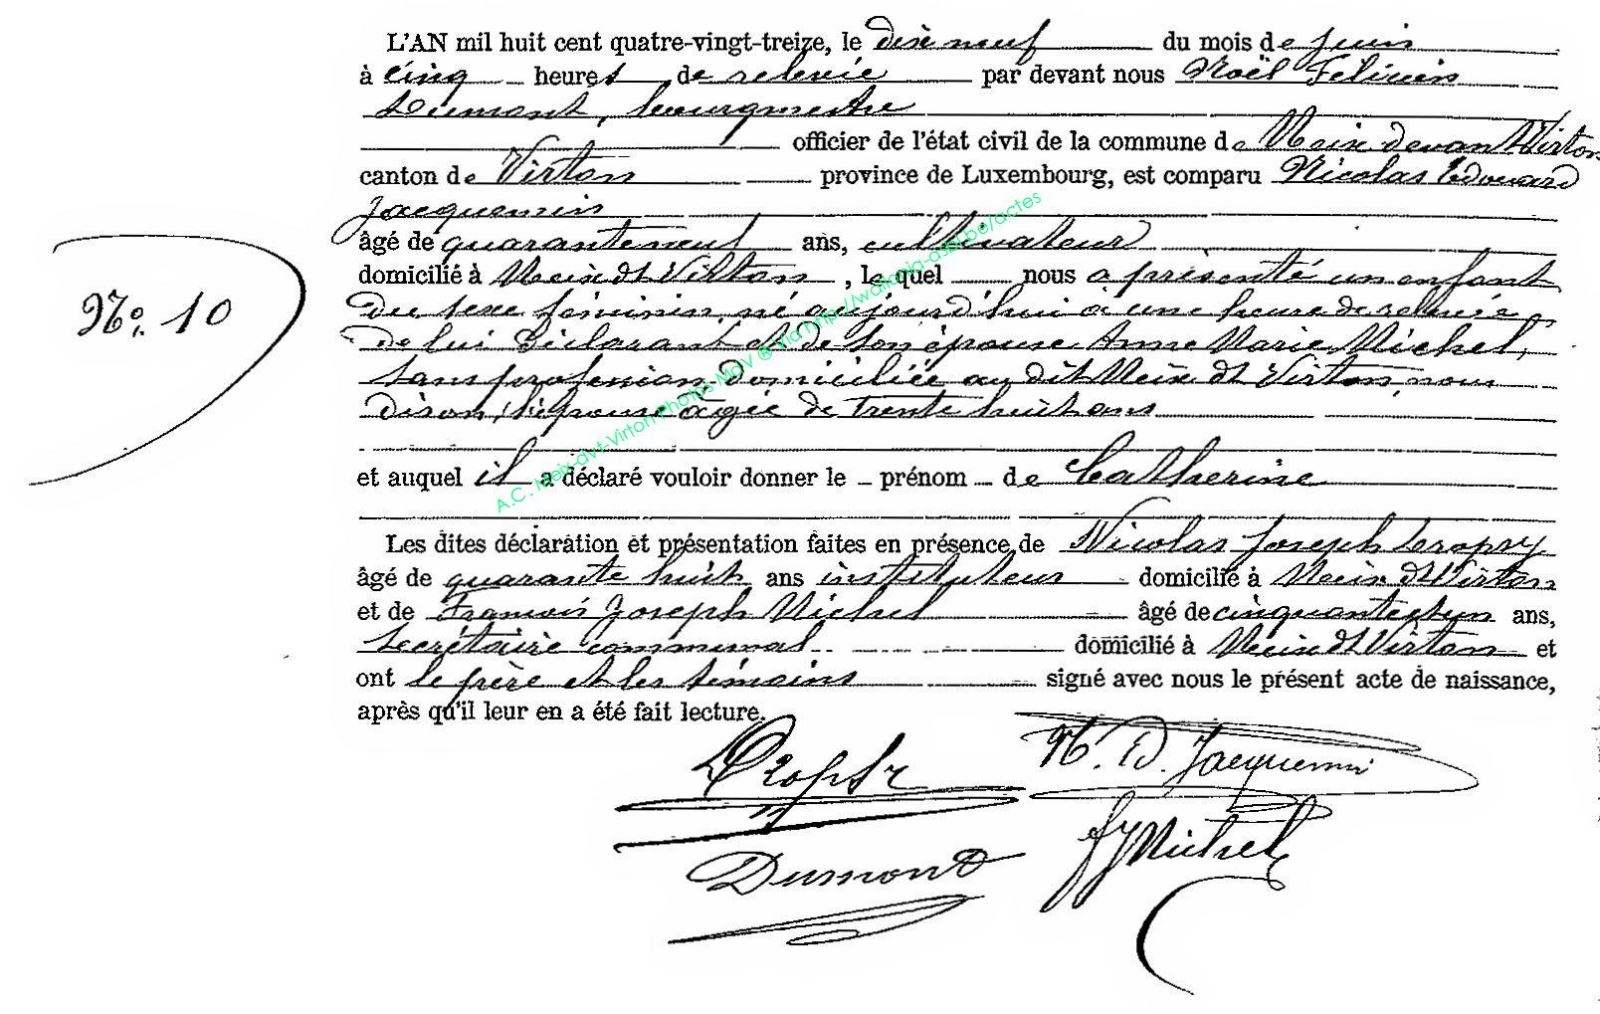 L'AN mil huit cent quatre-vingt-treize, le dix neuf du mois de juin
à cinq heures de relevée par devant nous Noël Félicien
Dumont, bourgmestre
officier de l'état civil de la commune de Meix devant Virton
canton de Virton province de Luxembourg, est comparu Nicolas Edouard
Jacquemin
âgé de quaranteneuf ans, cultivateur
domicilié à Meix dt Virton, lequel nous a présenté un enfant
du sexe féminin, né aujourd'hui à une heure de relevée
N° 10
de lui déclarant et de son épouse Anne Marie Michel,
sans profession domiciliée au dit Meix dt Virton, nous
disons, l'épouse âgée de trente huit ans
et auquel il a déclaré vouloir donner le prénom de Catherine
A.C. Meix-dvt-Virton Photos MdV @ via http://wallonia-asbl.be/actes
Les dites déclaration et présentation faites en présence de Nicolas Joseph
âgé de quarante huit ans instituteur domicilié à Meix dt Virton
et de François Joseph Michel âgé de cinquantetun ans,
secrétaire communal domicilié à Meix dt Virton et
ont le père et les témoins signé avec nous le présent acte de naissance,
après qu'il leur en a été fait lecture.
N. Ed. Jacquemin
FJMichel
Dumont